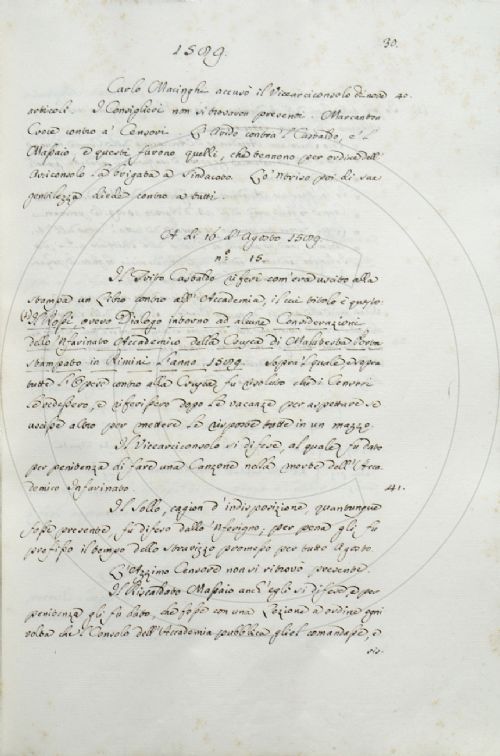 30.
1589.
Carlo Macinghi accusò il Vicearciconsolo di nove 40.
articoli. I Consiglieri non si trovaron presenti. Marcanton
Croce contro a' Censori. L'Arido contra 'l Castaldo, e 'l
Massaio, e questi furono quelli, che tennono per ordine dell'
Arciconsolo la brigata a Sindacato. Lo 'Ntriso poi di sua
gentilezza diede contro a tutti.
A dì 16. d'Agosto 1589.
n.° 15.
Il Trito Castaldo riferì com'era uscito alla
stampa un Libro contro all'Accademia, il cui titolo è questo
Il Rossi, ovvero Dialogo intorno ad alcune Considerazioni
dello 'Nfarinato Accademico della Crusca di Malatesta Porta
stampato in Rimini l'anno 1589. Sopra 'l quale, e sopra
tutte l'Opere contro alla Crusca, fu risoluto che i Censori
le vedessero, e riferissero dopo le vacanze per aspettare se
uscisse altro per mettere le risposte tutte in un mazzo.
Il Vicearciconsolo si difese, al quale fu dato
per penitenza di fare una Canzone nella morte dell'Acca-
demico Infarinato. 41.
Il Sollo, cagion d'indisposizione, quantunque
fosse presente, fu difeso dallo 'Nferigno; per pena gli fu
prefisso il tempo dello Stravizzo promesso per tutto Agosto.
L'Azzimo Censore non si ritrovò presente.
Il Riscaldato Massaio anch'egli si difese e per
penitenza gli fu dato, che fosse con una Lezione a ordine ogni
volta che 'l Consolo dell'Accademia pubblica gliel comandasse, e